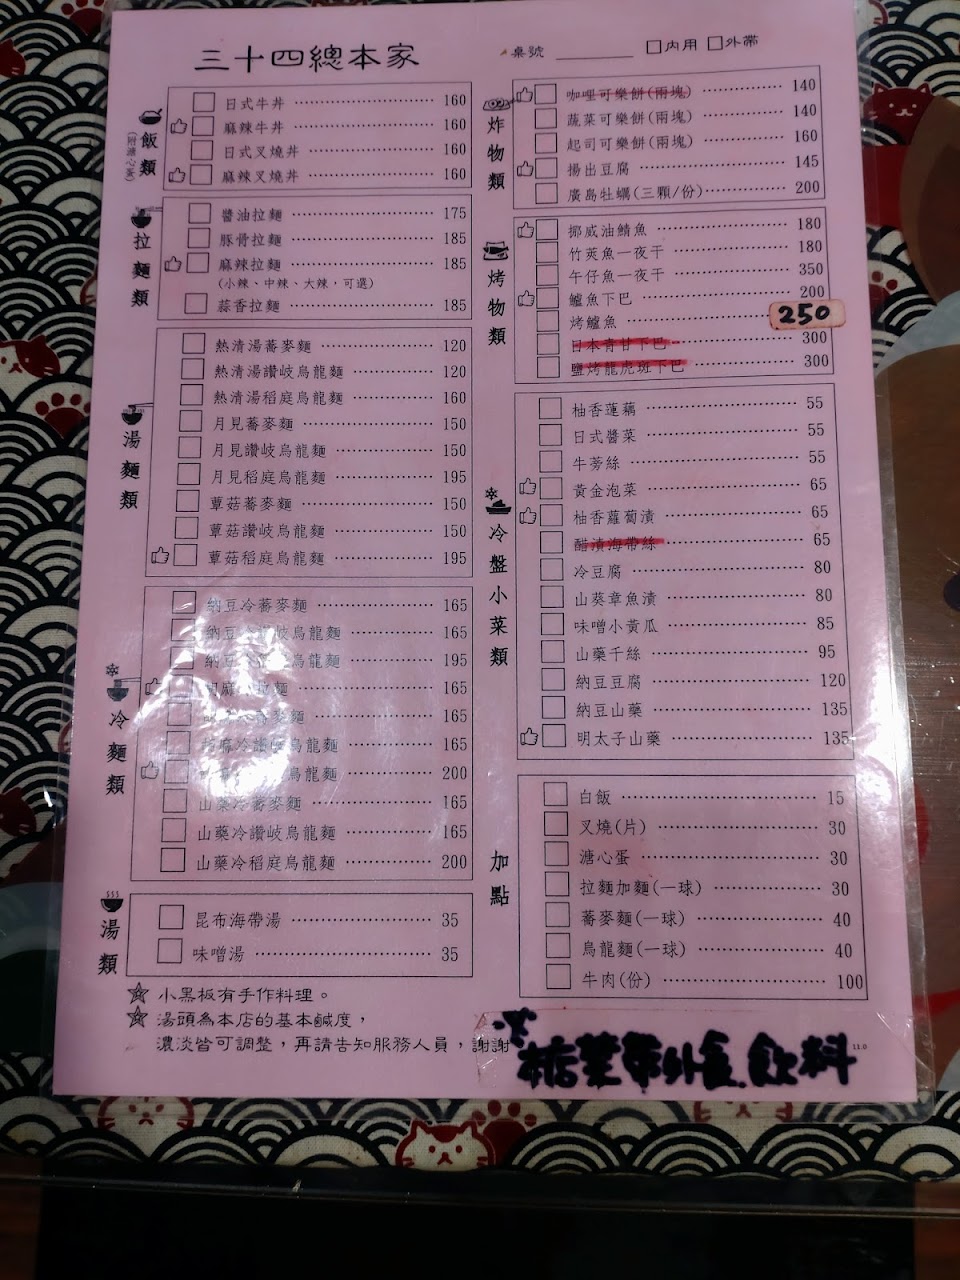 三十四總本家
桌號 □內用 □外帶
飯類
(附溏心蛋)
日式牛丼 160
麻辣牛丼 160
日式叉燒丼 160
麻辣叉燒丼 160
拉麵類
醬油拉麵 175
豚骨拉麵 185
麻辣拉麵 185
(小辣、中辣、大辣，可選)
蒜香拉麵 185
湯麵類
熱清湯蕎麥麵 120
熱清湯讚岐烏龍麵 120
熱清湯稻庭烏龍麵 160
月見蕎麥麵 150
月見讚岐烏龍麵 150
月見稻庭烏龍麵 195
蕈菇蕎麥麵 150
蕈菇讚岐烏龍麵 150
蕈菇稻庭烏龍麵 195
冷麵類
納豆冷蕎麥麵 165
納豆冷讚岐烏龍麵 165
納豆 烏龍麵 195
麵 165
蕎麥麵 165
冷讚岐烏龍麵 165
烏龍麵 200
山藥冷蕎麥麵 165
山藥冷讚岐烏龍麵 165
山藥冷稻庭烏龍麵 200
湯類
昆布海帶湯 35
味噌湯 35
小黑板有手作料理。
湯頭為本店的基本鹹度，
濃淡皆可調整，再請告知服務人員，謝謝
炸物類
咖哩可樂餅(兩塊) 140
蔬菜可樂餅(兩塊) 140
起司可樂餅(兩塊) 160
揚出豆腐 145
廣島牡蠣(三顆/份) 200
烤物類
挪威油鯖魚 180
竹莢魚一夜干 180
午仔魚一夜干 350
鱸魚下巴 200
烤鱸魚 250
日本青甘下巴 300
鹽烤龍虎斑下巴 300
冷盤小菜類
柚香蓮藕 55
日式醬菜 55
牛蒡絲 55
黃金泡菜 65
柚香蘿蔔漬 65
醋漬海帶絲 65
冷豆腐 80
山葵章魚漬 80
味噌小黃瓜 85
山藥千絲 95
納豆豆腐 120
納豆山藥 135
明太子山藥 135
加點
白飯 15
叉燒(片) 30
溏心蛋 30
拉麵加麵(一球) 30
蕎麥麵(一球) 40
烏龍麵(一球) 40
牛肉(份) 100
帶外食.飲料
11.0